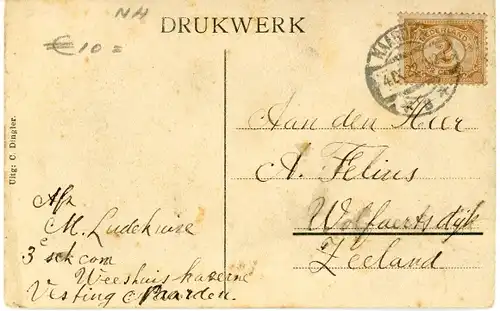 NH
DRUKWERK
€ 10 =
NEDERLAND
2
Aan den Heer
A. Felius
Wolfaertsdijk
Zeeland
Uitg: C. Dingler.
Afz
M. Ludekuize
3e sch com
Weeshuis kazerne
Vesting Naarden.